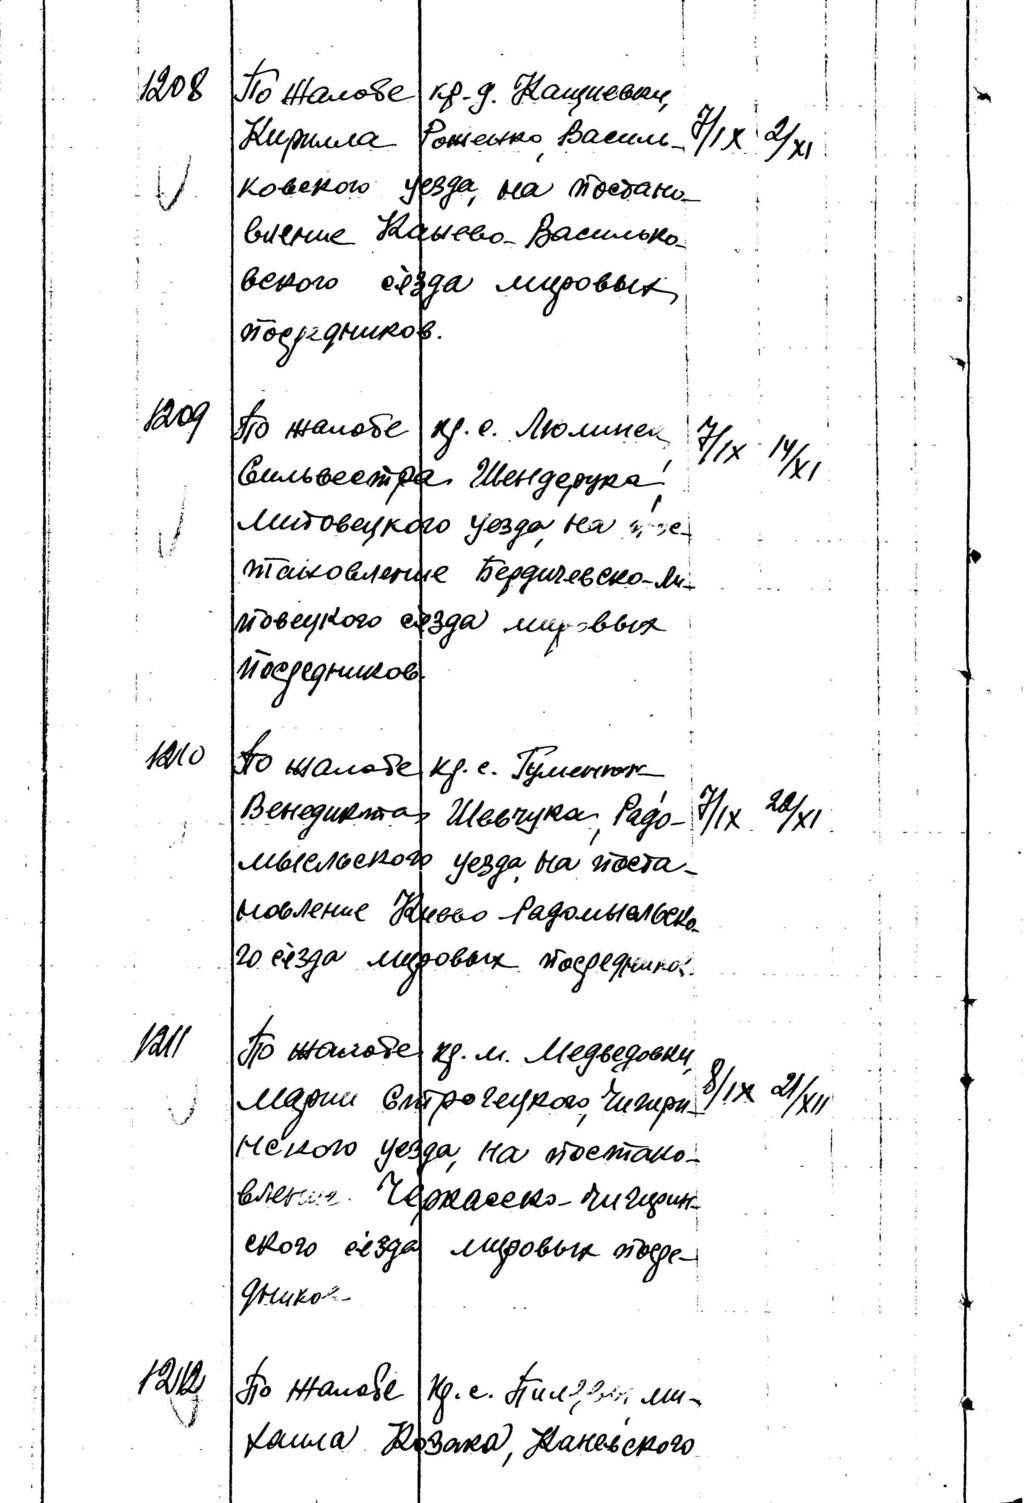 1208 По жалобе кр. д. Кащиевки,
Кирилла Роженко, Василь- 7/IX 2/XI
ковского уезда, на постано-
вление Канево-Василько-
вского съезда мировых
посредников.
1209 По жалобе кр. с. Люлинец,
Сильвестра Шендерука, 7/IX 14/XI
Липовецкого уезда, на пос-
тановление Бердичевско-Ли-
повецкого съезда мировых
посредников.
1210 По жалобе кр. с. Гуменюк
Венедикта Шевчука, Радо- 7/IX 22/XI
мысльского уезда, на поста-
новление Киево-Радомысльско-
го съезда мировых посредников.
1211 По жалобе кр. м. Медведовки,
Марии Строгецкого, Чигири- 8/IX 21/XII
нского уезда, на постано-
вление Черкасско-Чигирин-
ского съезда мировых посре-
дников
1212 По жалобе кр. с. Ми-
хаила Козака, Каневского